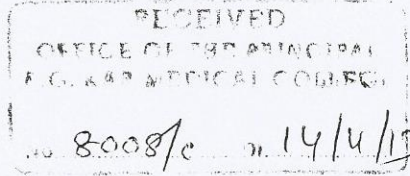 RECEIVED
OFFICE OF THE PRINCIPAL
R.G. KAR MEDICAL COLLEGE
No 8008/c 14/4/1